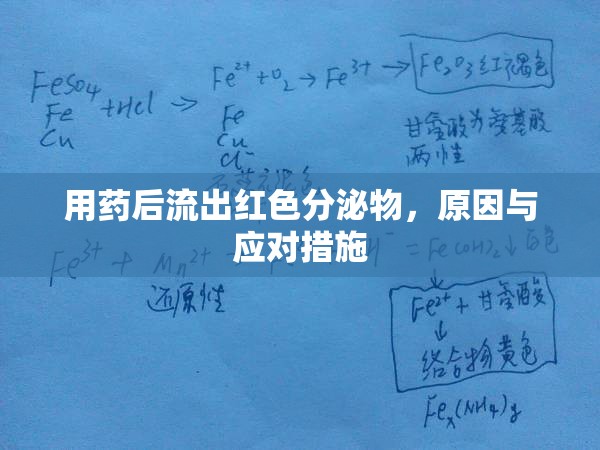 FeSO4
Fe +HCl →
Cu
Fe²⁺+O2→Fe³⁺→ Fe2O3红褐色
Fe
Cu
Cl⁻
甘氨酸为氨基酸
两性
用药后流出红色分泌物，原因与
应对措施
Fe³⁺ + Mn²⁺
还原性
= Fe(OH)2↓白色
Fe²⁺+甘氨酸
↓
络合物黄色
Feₓ(NH4)y